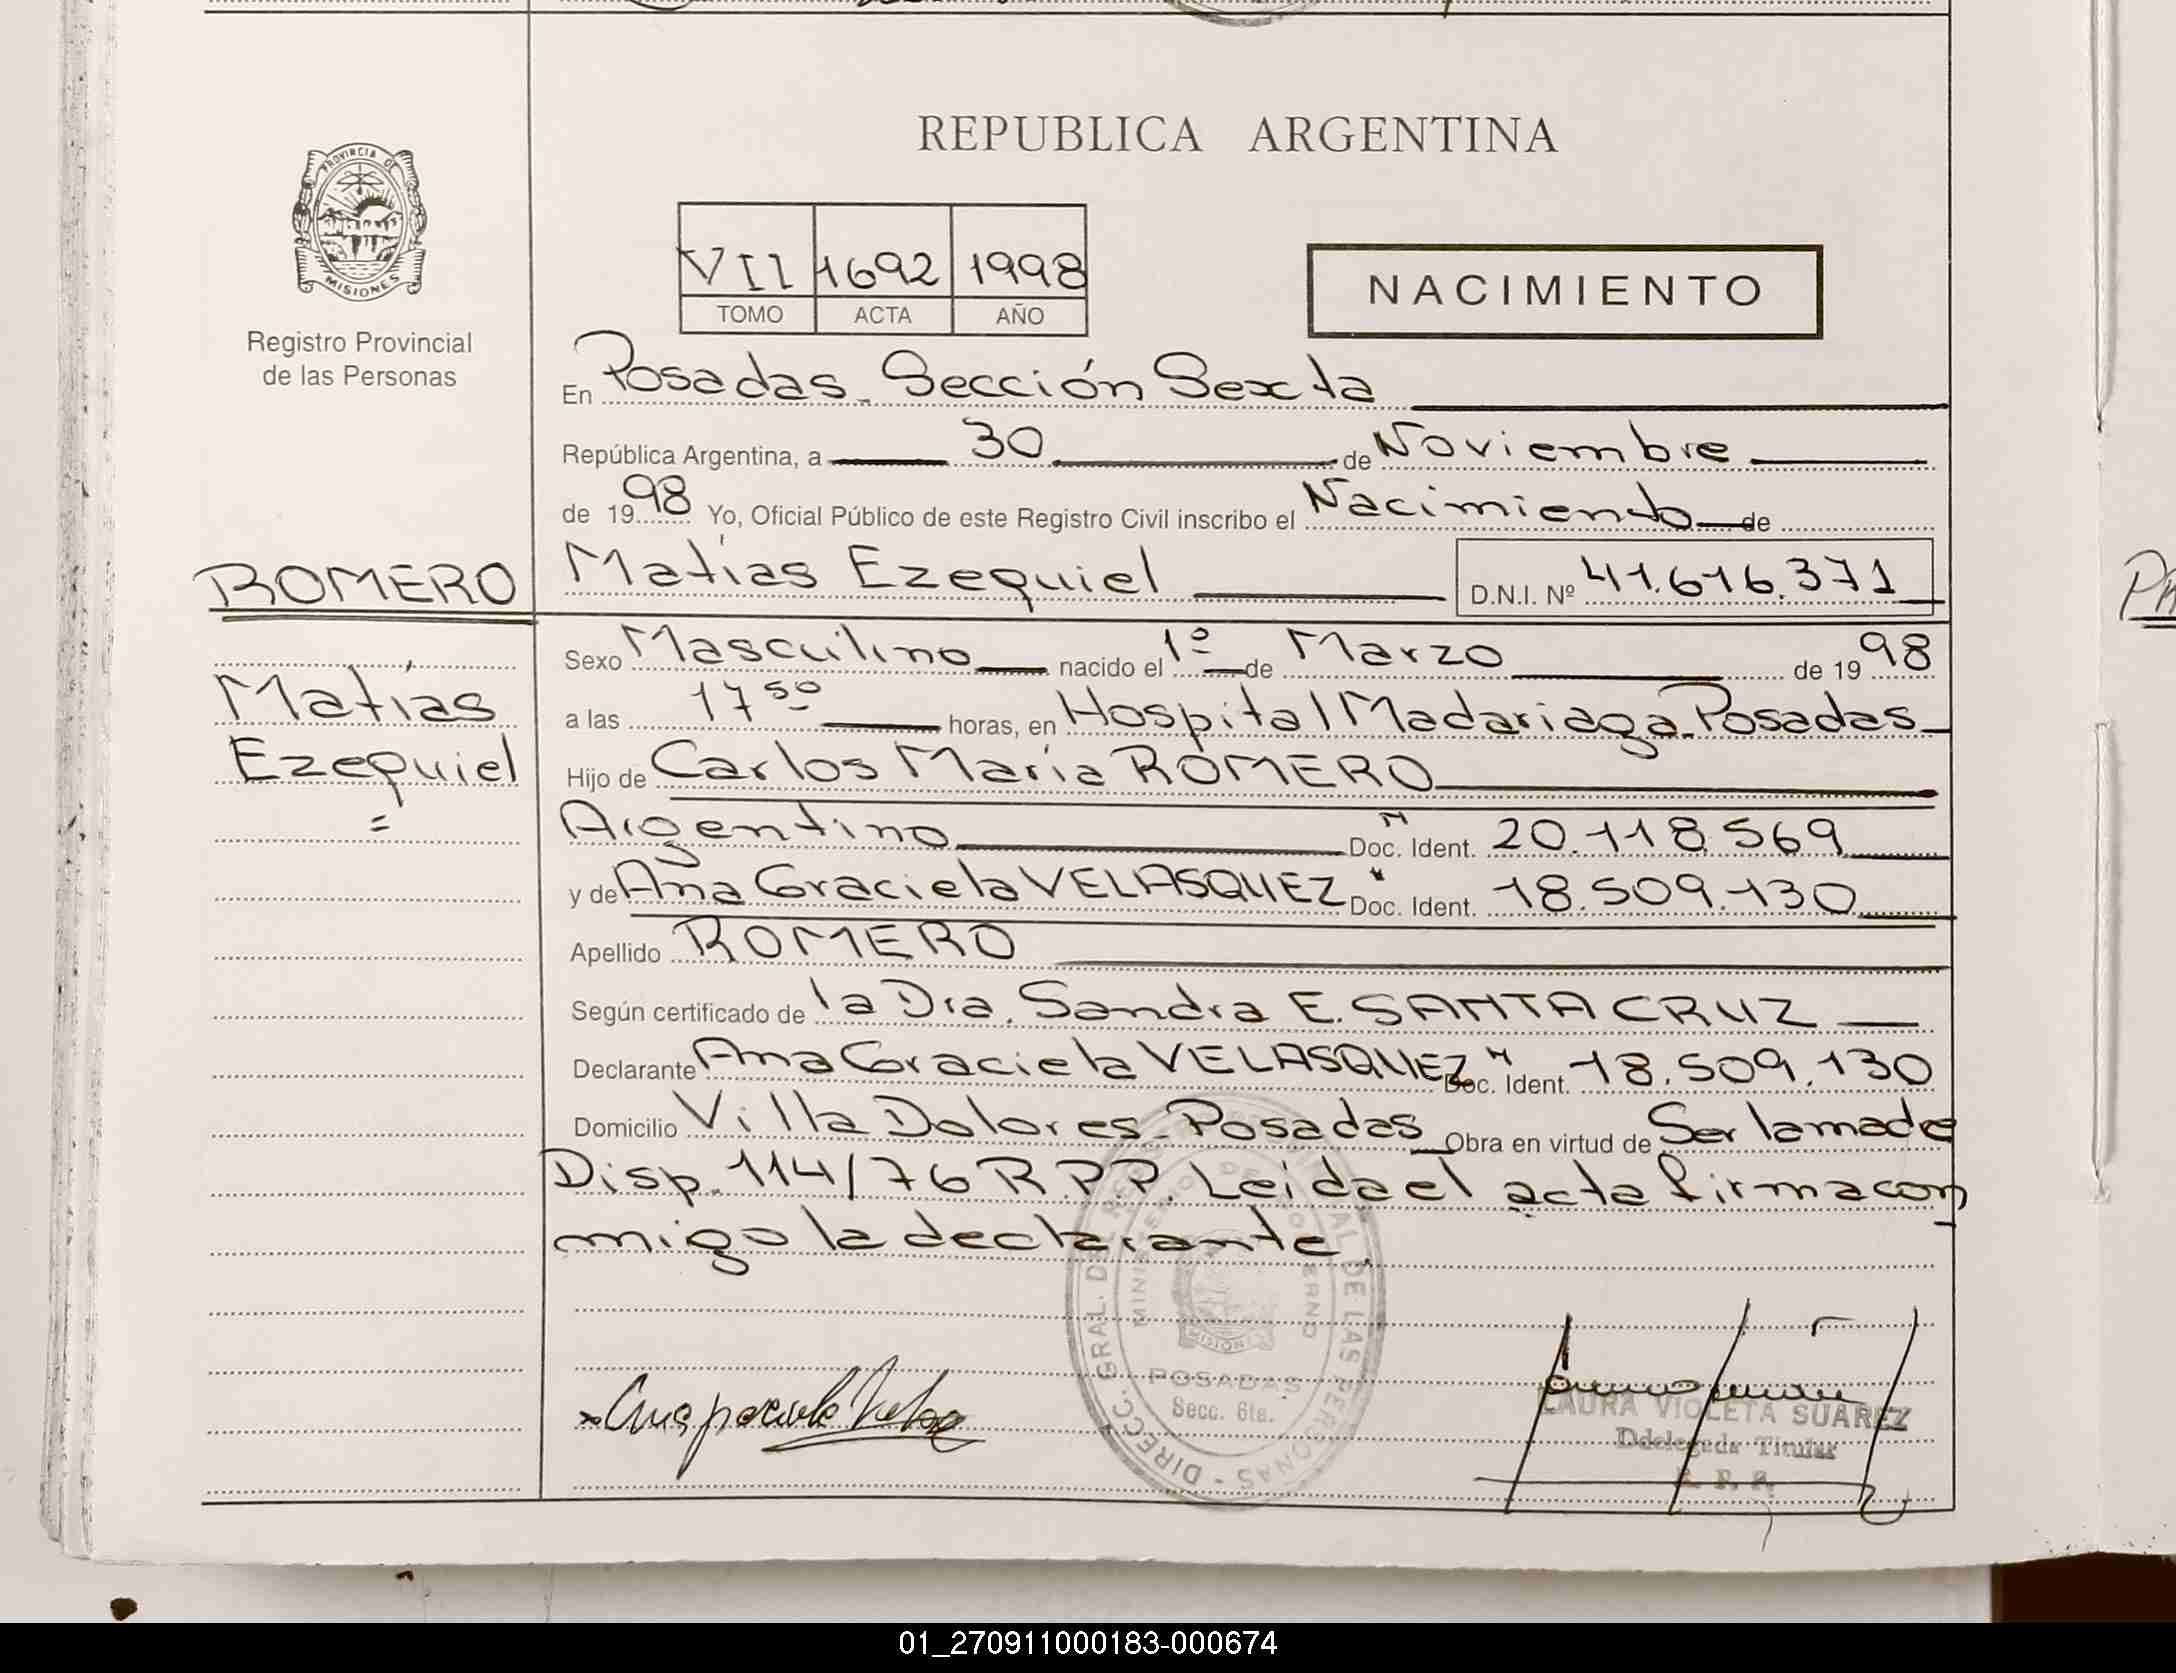 REPUBLICA ARGENTINA
PROVINCIA DE
MISIONES
Registro Provincial
de las Personas
VII 1692 1998
TOMO ACTA AÑO
NACIMIENTO
En Posadas. Sección Sexta
República Argentina, a 30 de Noviembre
de 1998 Yo, Oficial Público de este Registro Civil inscribo el Nacimiento de
ROMERO
Matías Ezequiel D.N.I. Nº 41.616.371
Sexo Masculino nacido el 1º de Marzo de 1998
Matías
a las 17 50 horas, en Hospital Madariaga. Posadas
Ezequiel
Hijo de Carlos María ROMERO
Argentino Doc. Ident. 20.118.569
y de Ana Graciela VELASQUEZ Doc. Ident. 18.509.130
Apellido ROMERO
Según certificado de la Dra. Sandra E. SANTA CRUZ
Declarante Ana Graciela VELASQUEZ Doc. Ident. 18.509.130
Domicilio Villa Dolores - Posadas Obra en virtud de Ser la madre
Disp. 114/76 R.P.P. Leida el acta firma con
migo la declarante.
DIRECC. GRAL. DEL REG. PROVINCIAL DE LAS PERSONAS
MINISTERIO DE GOBIERNO
MISIONES
POSADAS
Secc. 6ta.
LAURA VIOLETA SUAREZ
Ddelegada Titular
R. P. P.
01_270911000183-000674